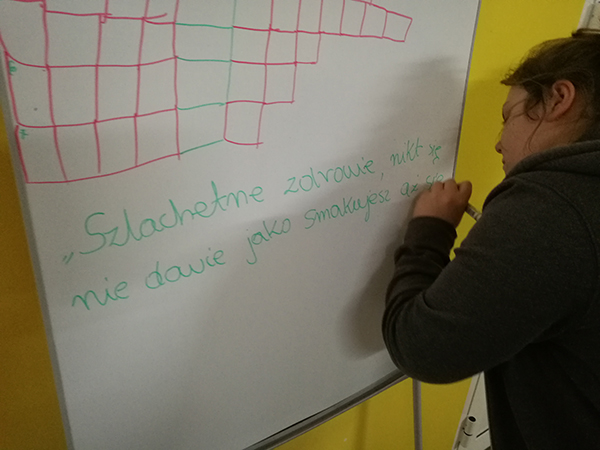 „Szlachetne zdrowie, nikt się
nie dowie jako smakujesz aż się